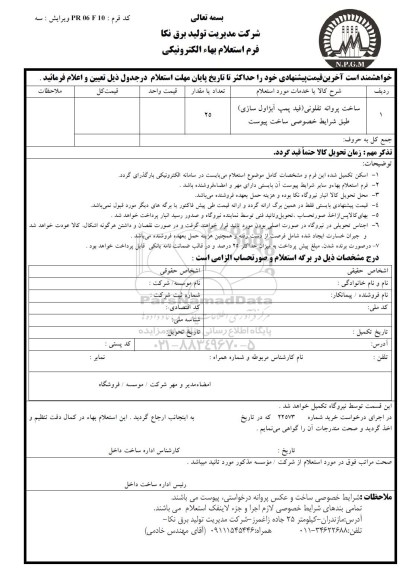 بسمه تعالی
کد فرم : PR 06 F 10 ویرایش : سه
شرکت مدیریت تولید برق نکا
فرم استعلام بهاء الکترونیکی
N.P.G.M
خواهشمند است آخرین قیمت پیشنهادی خود را حداکثر تا تاریخ پایان مهلت استعلام درجدول ذیل تعیین و اعلام فرمائید .
ردیف شرح کالا یا خدمات مورد استعلام تعداد یا مقدار قیمت واحد قیمت کل ملاحظات
۱ ساخت پروانه تفلونی(فید پمپ آبژاول سازی) ۲۵
طبق شرایط خصوصی ساخت پیوست
جمع کل به حروف:
تذکر مهم : زمان تحویل کالا حتماً قید گردد.
توضیحات:
۱- اسکن تکمیل شده این فرم و مشخصات کامل موضوع استعلام می‌بایست در سامانه الکترونیکی بارگذاری گردد.
۲- فرم استعلام بهاء و سایر شرایط پیوست آن بایستی دارای مهر و امضاء فروشنده باشد .
۳- محل تحویل کالا انبار نیروگاه نکا بوده و هزینه حمل بعهده فروشنده می‌باشد.
۴- قیمت پیشنهادی بایستی فقط در همین برگ ارائه گردد و ارائه قیمت طی پیش فاکتور یا برگه های دیگر مورد قبول نمی‌باشد.
۵- بهای کالا پس از اخذ صورتحساب ، تحویل و تائید فنی توسط نماینده نیروگاه و صدور رسید انبار پرداخت خواهد شد .
۶- اجناس تحویلی در نیروگاه در صورت اصلی بودن مورد تائید قرار خواهند گرفت و در صورت نقصان و داشتن هرگونه اشکال، کالا عودت خواهد شد
و جبران خسارت ایجاد شده شامل فرصت از دست رفته و همچنین هزینه حمل بعهده فروشنده می‌باشد.
۷- درصورت برنده شدن، مبلغ پیش پرداخت به میزان حداکثر ۲۵ درصد و در قالب ضمانت نامه بانکی قابل پرداخت خواهد بود .
درج مشخصات ذیل در برگه استعلام و صورتحساب الزامی است :
اشخاص حقیقی اشخاص حقوقی
نام و نام خانوادگی : نام موسسه / شرکت :
نام فروشنده / پیمانکار: شماره ثبت شرکت :
کد ملی: کد اقتصادی :
شناسه ملی:
تاریخ تکمیل : تاریخ تحویل:
آدرس: کد پستی :
تلفن : نام کارشناس مربوطه و شماره همراه : نمابر :
ParsNamadData
۰۲۱-۸۸۳۴۹۶۷۰-۵
امضاء مدیر و مهر شرکت / موسسه / فروشگاه
این قسمت توسط نیروگاه تکمیل خواهد شد .
در اجرای درخواست خرید شماره ۲۲۵۷۳ که در تاریخ به اینجانب ارجاع گردید . این استعلام بهاء در کمال دقت تنظیم و
اخذ گردید و صحت مندرجات آن را گواهی می‌نمایم .
تاریخ : کارشناس اداره ساخت داخل
صحت مراتب فوق در مورد استعلام از شرکت / مؤسسه مذکور مورد تائید میباشد .
رئیس اداره ساخت داخل
ملاحظات: شرایط خصوصی ساخت و عکس پروانه درخواستی، پیوست می باشند.
تمامی بندهای شرایط خصوصی لازم اجرا و جزء لاینفک استعلام می باشند.
آدرس:مازندران-کیلومتر ۲۵ جاده زاغمرز-شرکت مدیریت تولید برق نکا-
تلفن:۳۴۶۲۲۶۸۸-۰۱۱ همراه:۰۹۱۱۱۵۴۵۴۴۶ (آقای مهندس خادمی)